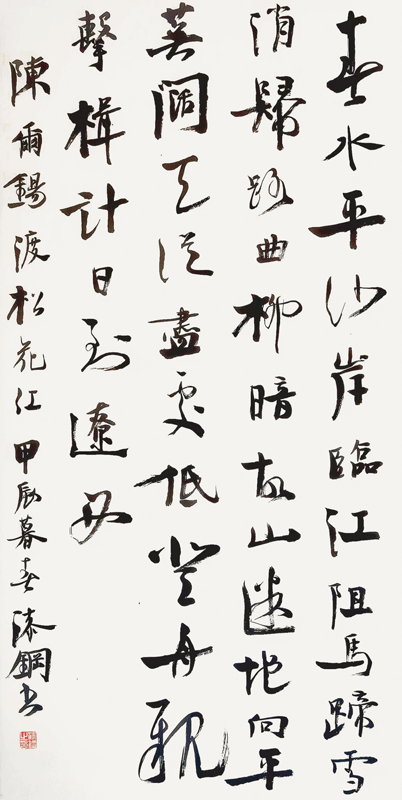 春水平沙岸臨江阻馬蹄雪
消歸路曲柳暗故山迷地向平
蕪闊天從盡處低登舟親
擊楫計日到遼西
陳爾錫渡松花江甲辰暮春漆鋼书